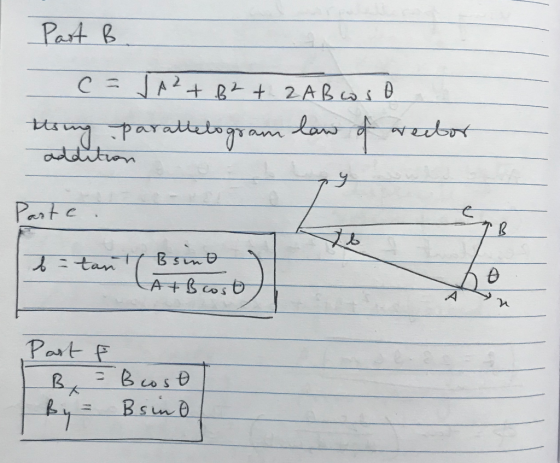 Part B.
C = √A² + B² + 2AB cos θ
Using parallelogram law of vector
addition
y
Part C.
C
B
b
b = tan⁻¹ (B sin θ / A + B cos θ)
θ
A
x
Part F
Bx = B cos θ
By = B sin θ